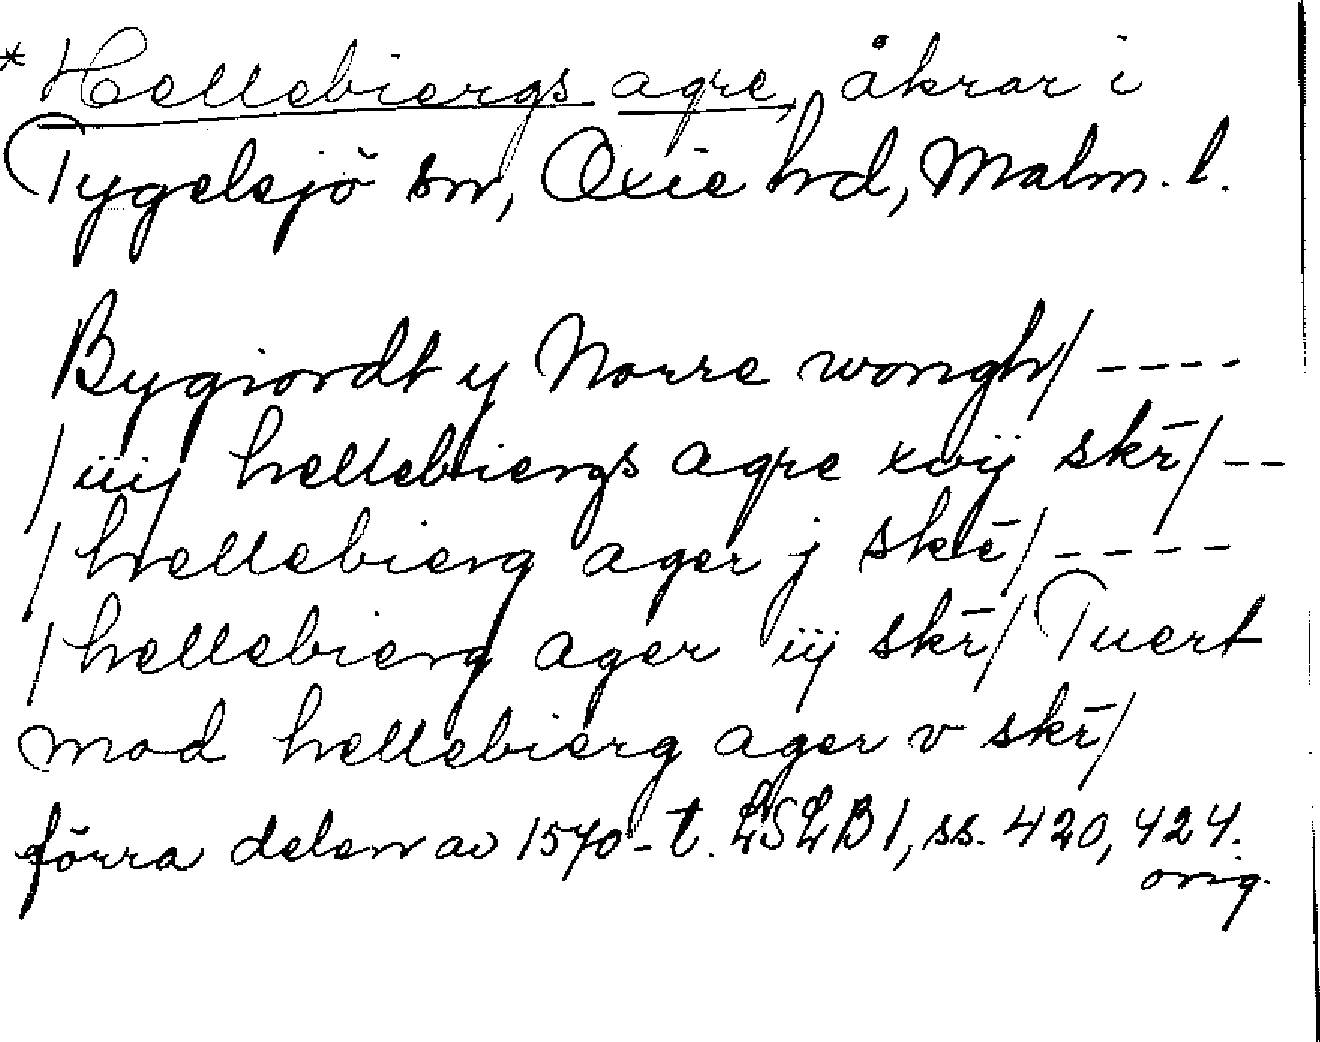 * Hellebiergs agre, åkrar i
Tygelsjö sn, Oxie hd, Malm. l.
Bygiordt y Norre wongh/ ----
/ iiij hellebiergs agre xvij skr̄/ --
/ hellebierg ager j skr̄/ ----
/ hellebierg ager iij skr̄/ Tuert
mod hellebierg ager v skr̄/
förra delen av 1570-t. LSLB 1, ss. 420, 424.
orig.